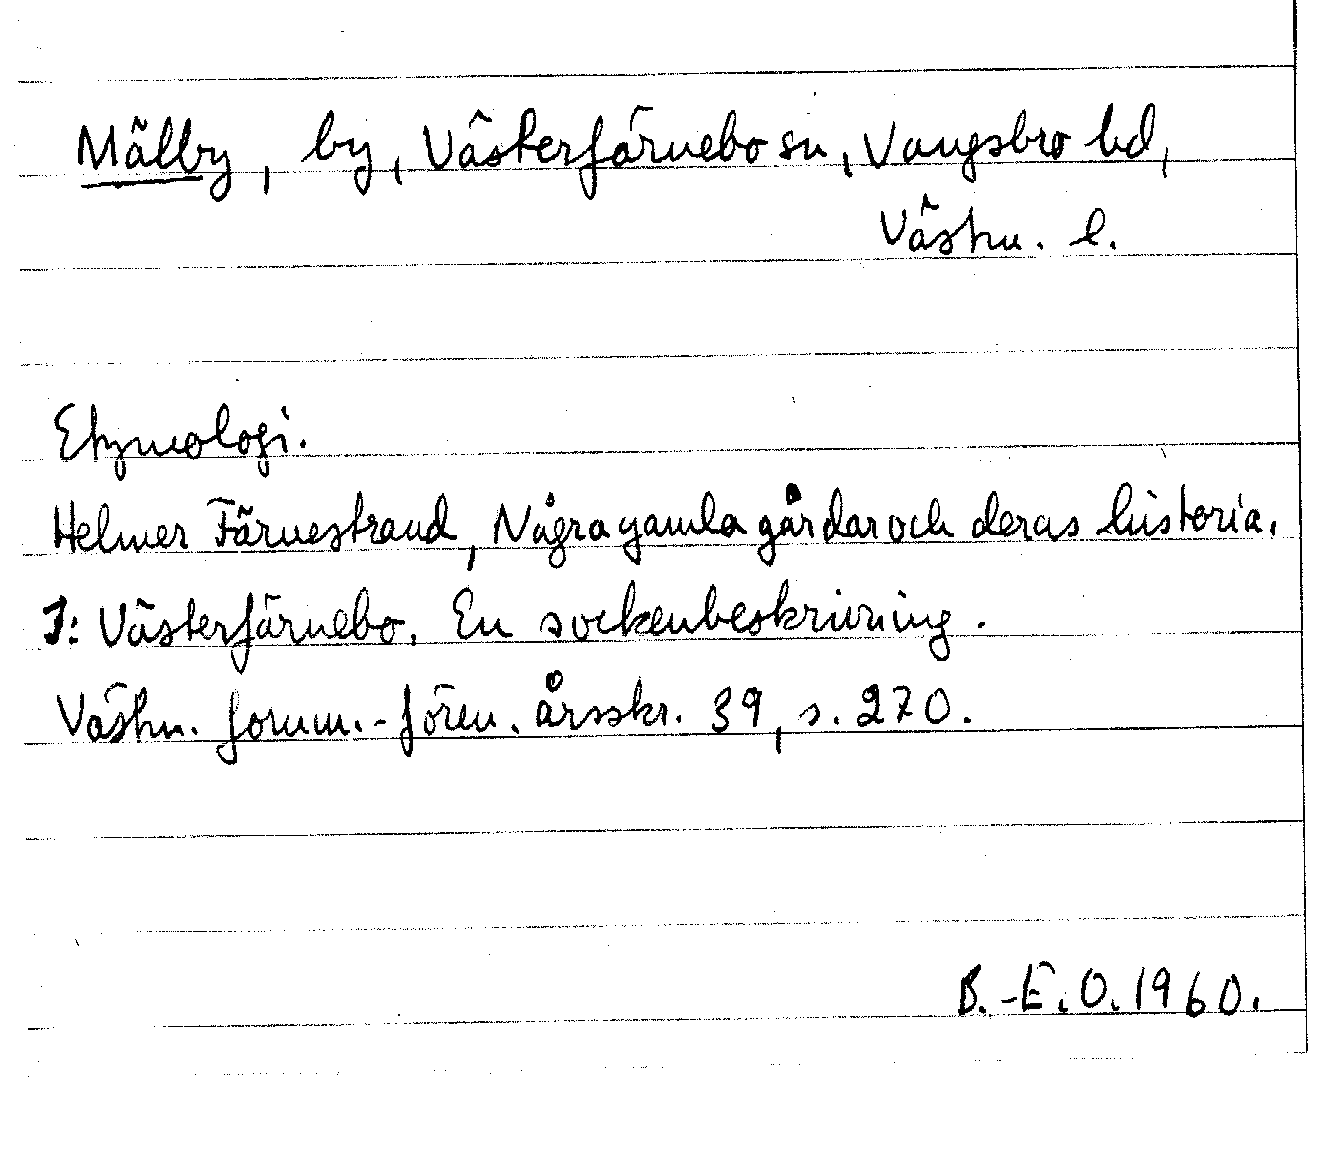 Mälby, by, Västerfärnebo sn, Vangsbro hd,
Västm. l.
Etymologi.
Helmer Färnestrand, Några gamla gårdar och deras historia.
I: Västerfärnebo. En sockenbeskrivning.
Västm. fornm.-fören. årsskr. 39, s. 270.
B.-E.O. 1960.